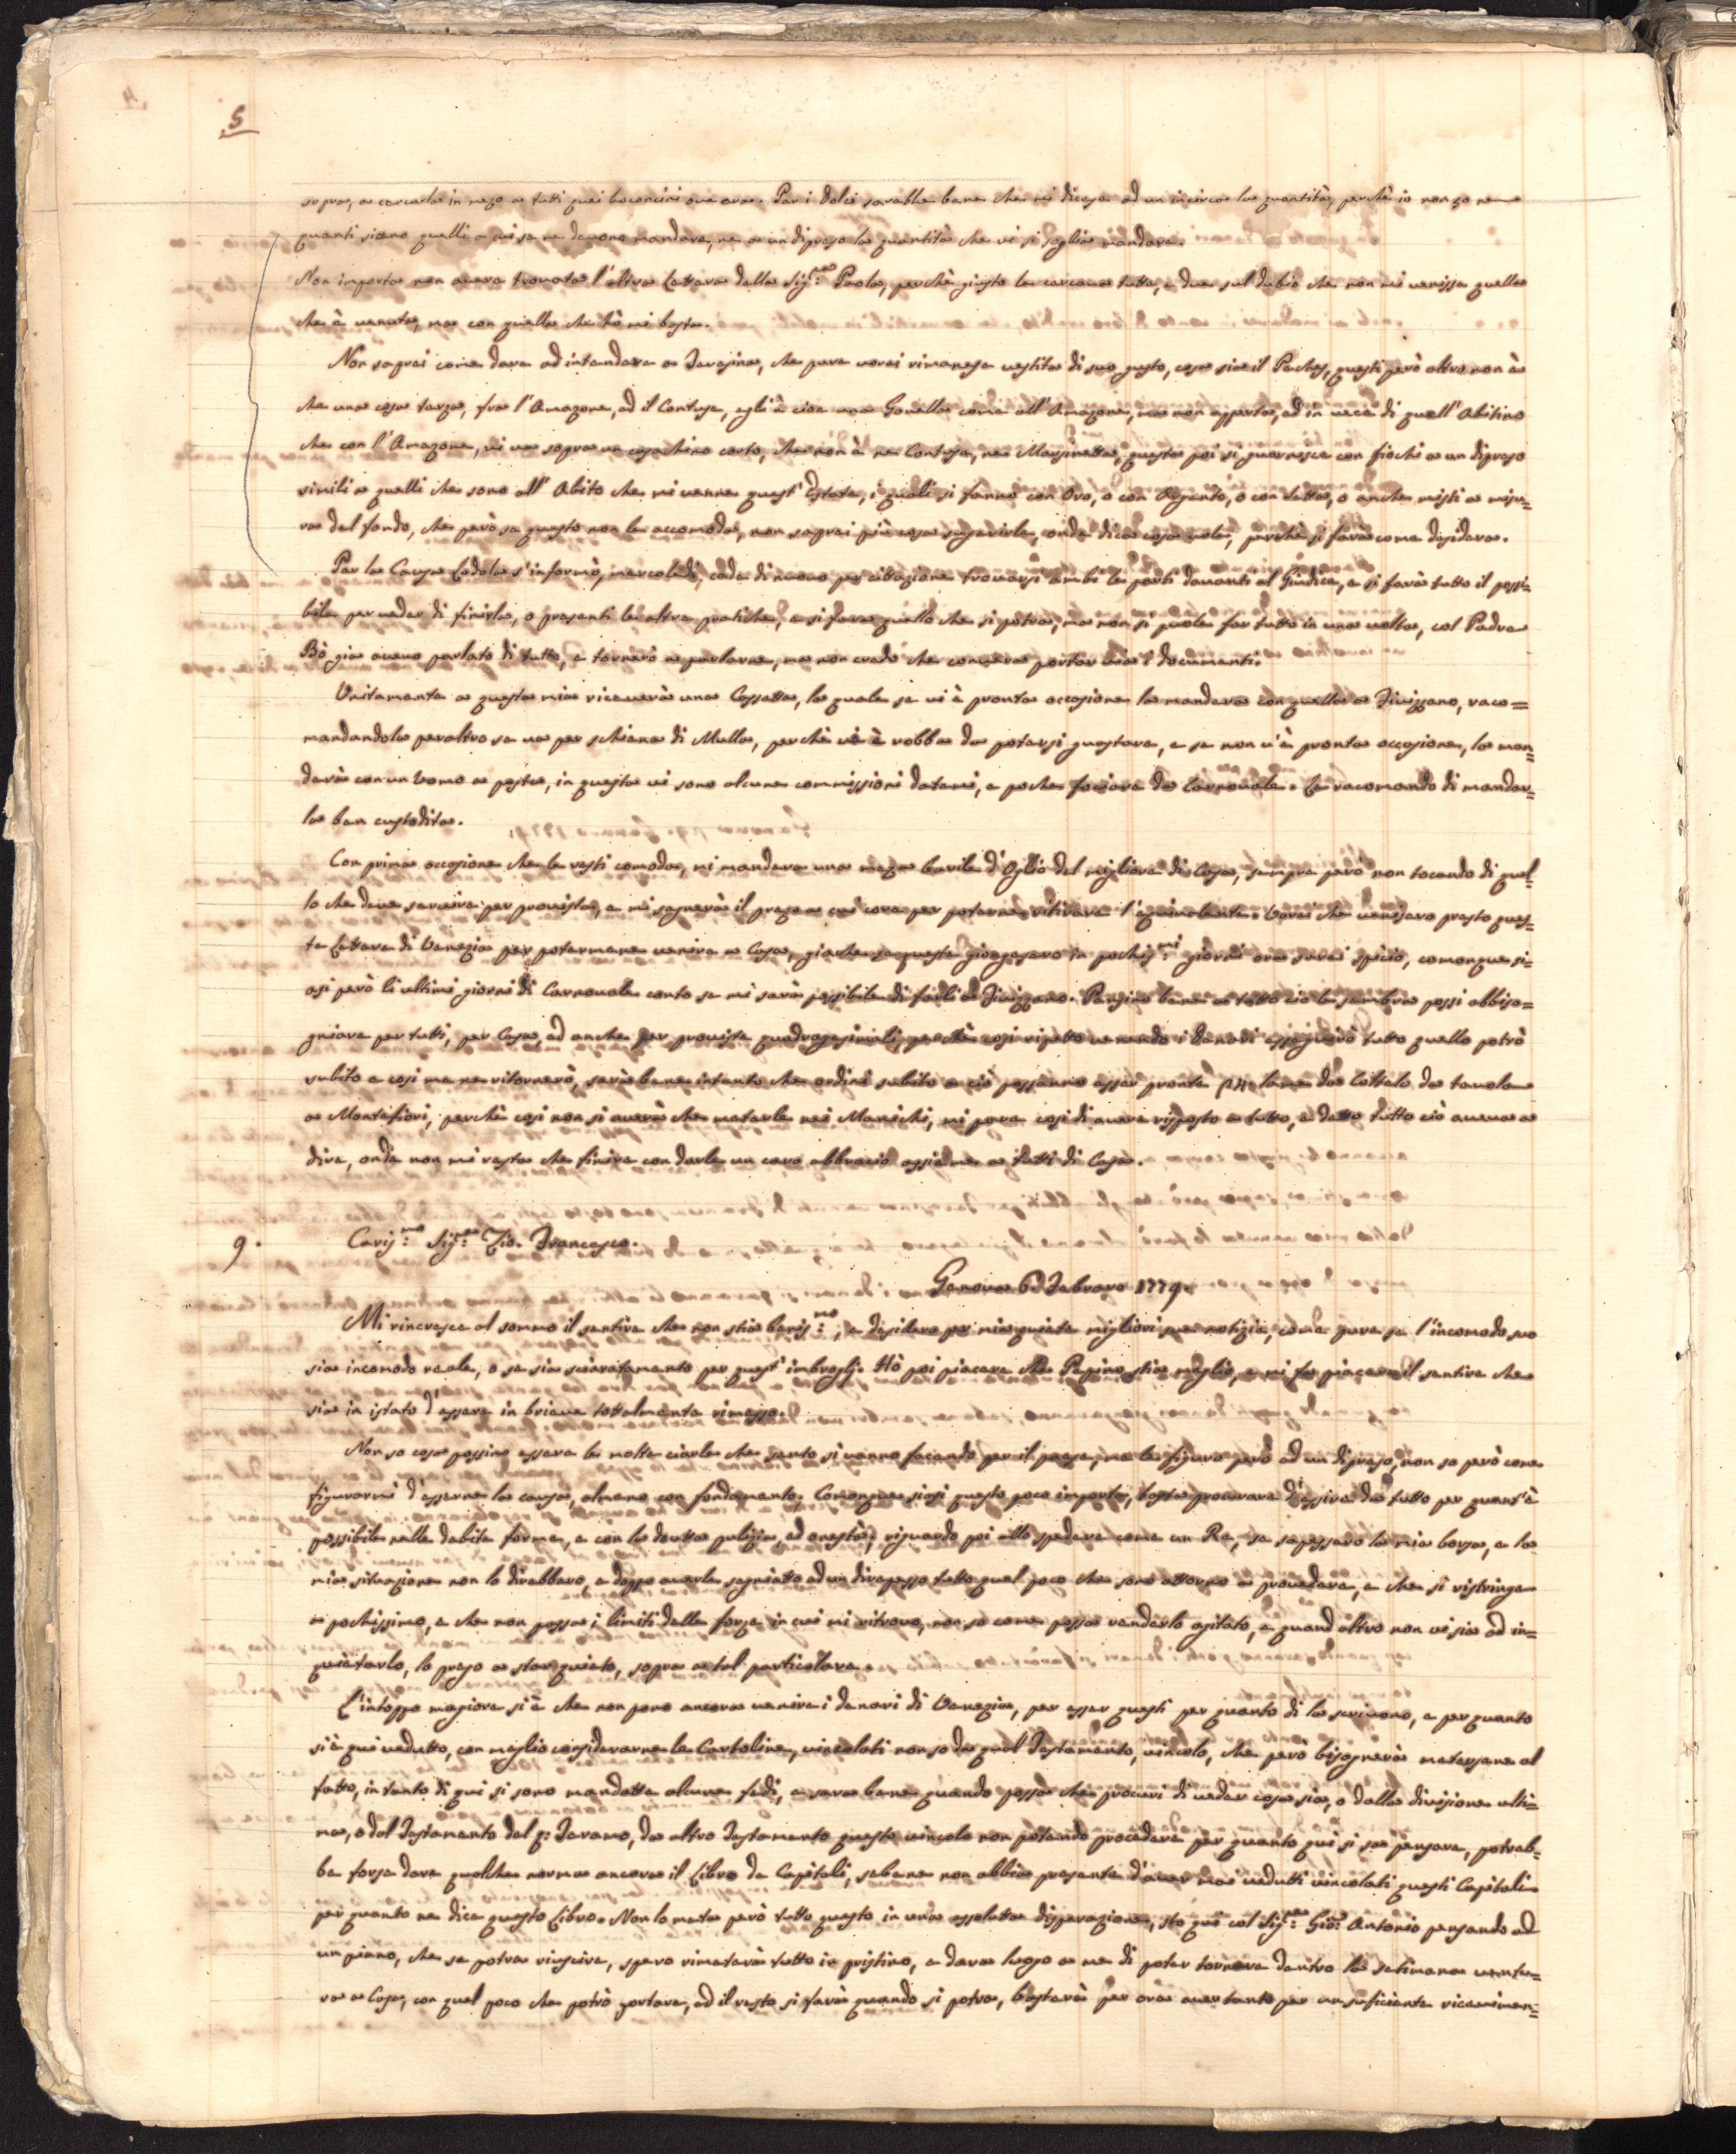 5
sopra, a cercarla in mezo a tutti quei boconcini ove era. Per i dolci sarebbe bene che mi dicesse ad un incirca la quantità, perchè io non so ne
quanti siano quelli a cui se ne devono mandare, ne a un dipreso la quantità che vi si soglia mandare.
Non importa non avere trovata l'altra Lettera della Sig.ra Paola, perchè giusto le cercavo tutte, e due sul dubio che non mi venisse quella
che è venuta, ma con quella che hò mi basta.
Non saprei come dare ad intendere a Teresina, che pure vorei rimanesse vestita di suo gusto, cosa sia il Peches, questi però altro non è
che una cosa terza, fra l'Amazone, ed il Contuse, egl'è cioè una Gonella come all'Amazone, ma non apperta, ed in vece di quell'Abitino
che con l'Amazone, vi va sopra un casachino corto, che non è ne Contuse, ne Marsinetta, questa poi si guarnisce con fiochi a un dipreso
simili a quelli che sono all'Abito che mi venne quest'Estate, i quali si fanno con Oro, o con Argento, o con Setta, o anche misti a misu=
ra del fondo, che però se questo non le accomoda, non saprei più cosa sugerirle, onde dica cosa vole, perchè si farà come desidera.
Per la Causa Ladola s'informò, mercoledì, cade di nuovo per citazione trovarsi ambi le parti davanti al Giudice, e si farà tutto il possi=
bile per veder di finirla, o presenti le altre pratiche, e si farà quello che si potrà, ma non si puole far tutto in una volta, col Padre
Bò gia avevo parlato di tutto, e tornerò a parlarne, ma non credo che converrà portar via i documenti.
Unitamente a questa mia riceverà una Cassetta, la quale se vi è pronta occasione la manderà con quella a Fivizzano, raco=
mandandola peraltro se va per schiena di Mullo, perchè vi è robba da potersi guastare, e se non v'è pronta occasione, la man=
derà con un Uomo a posta, in questa vi sono alcune commissioni datemi, e poche fociare da Carnovale. Le racomando di mandar=
la ben custodita.
Con prima occasione che le resti comoda, mi manderà una meza barile d'Oglio del migliore di Casa, sempre però non tocando di quel=
lo che deve servire per provista, e mi segnerà il prezo a cui core per poterne ritirare l'equivalente. Vorei che venissero presto ques=
te Lettere di Venezia per potermene venire a Casa, giache se queste giongessero in pochis.mi giorni ora sarei spicio, comonque si=
asi però li ultimi giorni di Carnovale conto se mi sarà possibile di farli a Fivizzano. Pensino bene a tutto ciò le sembra possi abbiso=
gniare per tutti, per Casa, ed anche per proviste quadragesimali, perchè così ripetto venendo i denari esseguirò tutto quello potrò
subito e così me ne ritornerò, sarà bene intanto che ordini subito a ciò possanno esser pronte 24 lame da Coltelo da tavola
a Montefiori, perchè così non si averà che metterle nei Manichi, mi pare così di avere risposto a tutto, e detto tutto ciò avevo a
dire, onde non mi resta che finire con darle un caro abbracio assieme a tutti di Casa.
9. Caris.mo Sig.re Zio. Francesco.
Genova 6. Febraro 1779.
Mi rincresce al sommo il sentire che non stia benis.mo, e desidero per mia quiete migliori sue notizie, come pure se l'incomodo suo
sia incomodo reale, o se sia sciaratamento per quest'imbroglj. Hò poi piacere che Pepino stia meglio, e mi fa piacere il sentire che
sia in istato d'essere in brieve totalmente rimesso.
Non so cosa possino essere le molte ciarle che sento si vanno facendo per il paese, me le figuro però ad un dipreso, non so però come
figurarmi d'esserne la causa, almeno con fondamento; Comonque siasi questo poco importa, basta procurare d'essire da tutto per quant'è
possibile nella debita forma, e con la dovuta pulizia, ed onestà, riguardo poi allo spedere come un Re, se sapessero la mia borsa, e la
mia situazione non lo direbbero, e doppo averle segniatto ad un dipresso tutto quel poco che sono attorno a provedere, e che si ristringe
a pochissimo, e che non passa i limiti delle forze in cui mi ritrovo, non so come possa renderlo agitato, e quand altro non vi sia ad in=
quietarlo, lo prego a star quieto, sopra a tal particolare.
L'intoppo magiore si è che non pono ancora venire i denari di Venezia, per esser questi per quanto di la scrivono, e per quanto
si è qui vedutto, con meglio considerarne le Cartoline, vincolati non so da qual Testamento, vincolo, che però bisognerà metersene al
fatto, in tanto di qui si sono mandatte alcune fedi, e sarà bene quando possa che procuri di veder cosa sia, o dalla divisione ulti=
ma, o dal Testamento del q: Jeramo, da altro Testamento questo vincolo non potendo procedere per quanto qui si sa pensare, potreb=
be forse dare qualche norma ancora il Libro de Capitali, sebene non abbia presente d'aver mai vedutti vincolati questi Capitali
per quanto ne dice questo Libro. Non lo meta però tutto questo in una assoluta disperazione, sto qui col Sig.re Gio: Antonio pensando ad
un piano, che se potrà riuscire, spero rimeterà tutto in pristino, e darà luogo a me di poter tornare dentro la setimana ventu=
ra a Casa, con quel poco che potrò portare, ed il resto si farà quando si potrà, bastarà per ora aver tanto per un suficiente ricevimen=